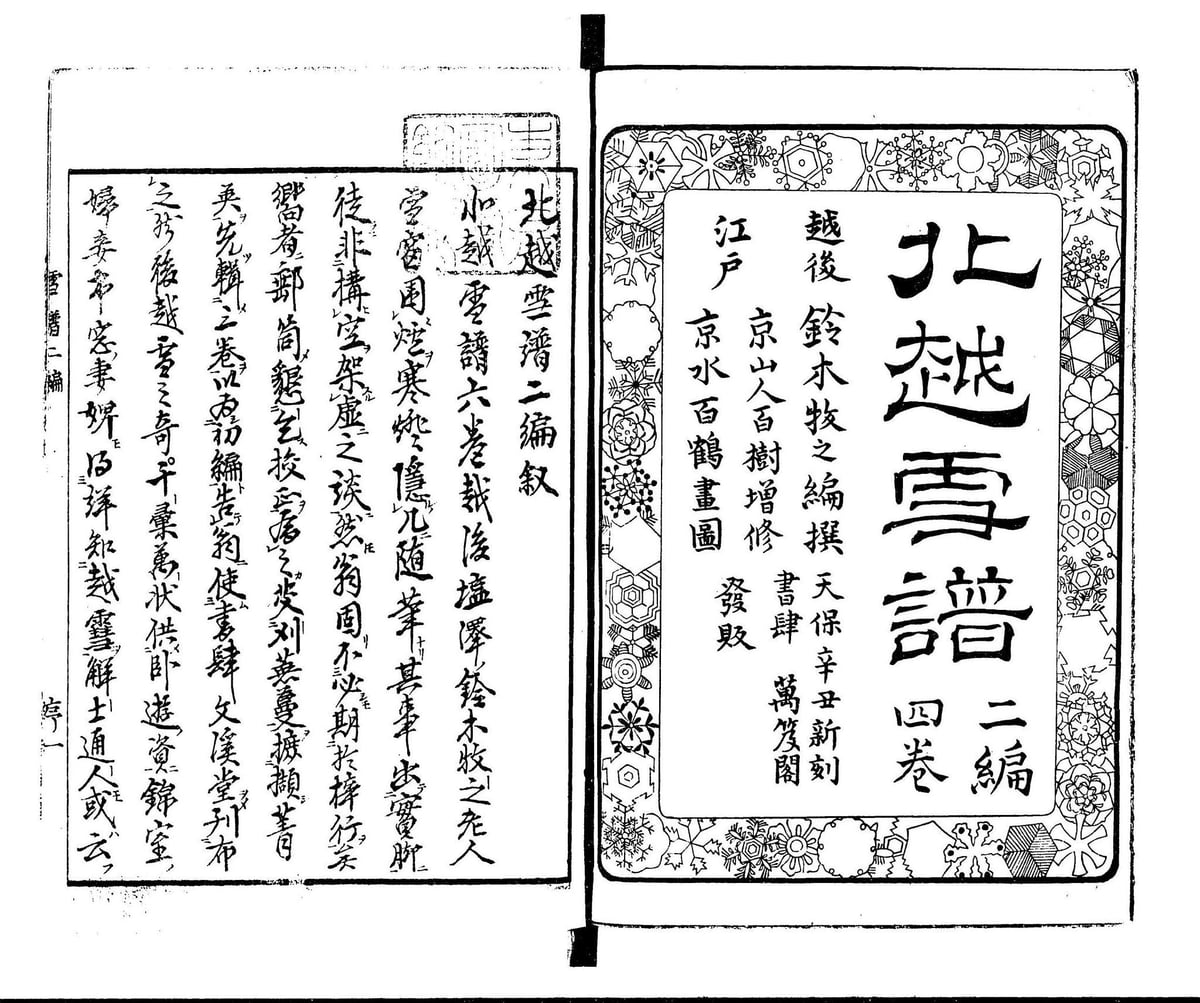 北越雪譜
二編
四巻
越後 鈴木牧之編撰
京山人百樹増修
江戸 京水百鶴畫圖
天保辛丑新刻
書肆 萬笈閣
發販
北越雪譜二編叙
北越雪譜六巻越後塩澤鈴木牧之老人
雪窗囲炉寒燈隠几随筆其事出實聊
徒非構空架虚之談然翁固不必期於梓行矣
嚮者郵筒懇乞校正為之芟刈蕪蔓摭擷菁
英先輯三巻以為初編告翁使書肆文溪堂刊布
之於後越雪之奇千彙萬状供臥遊資錦室
婦妾
窓妻婢
詳知越雪解士通人或云
雪譜二編
序一